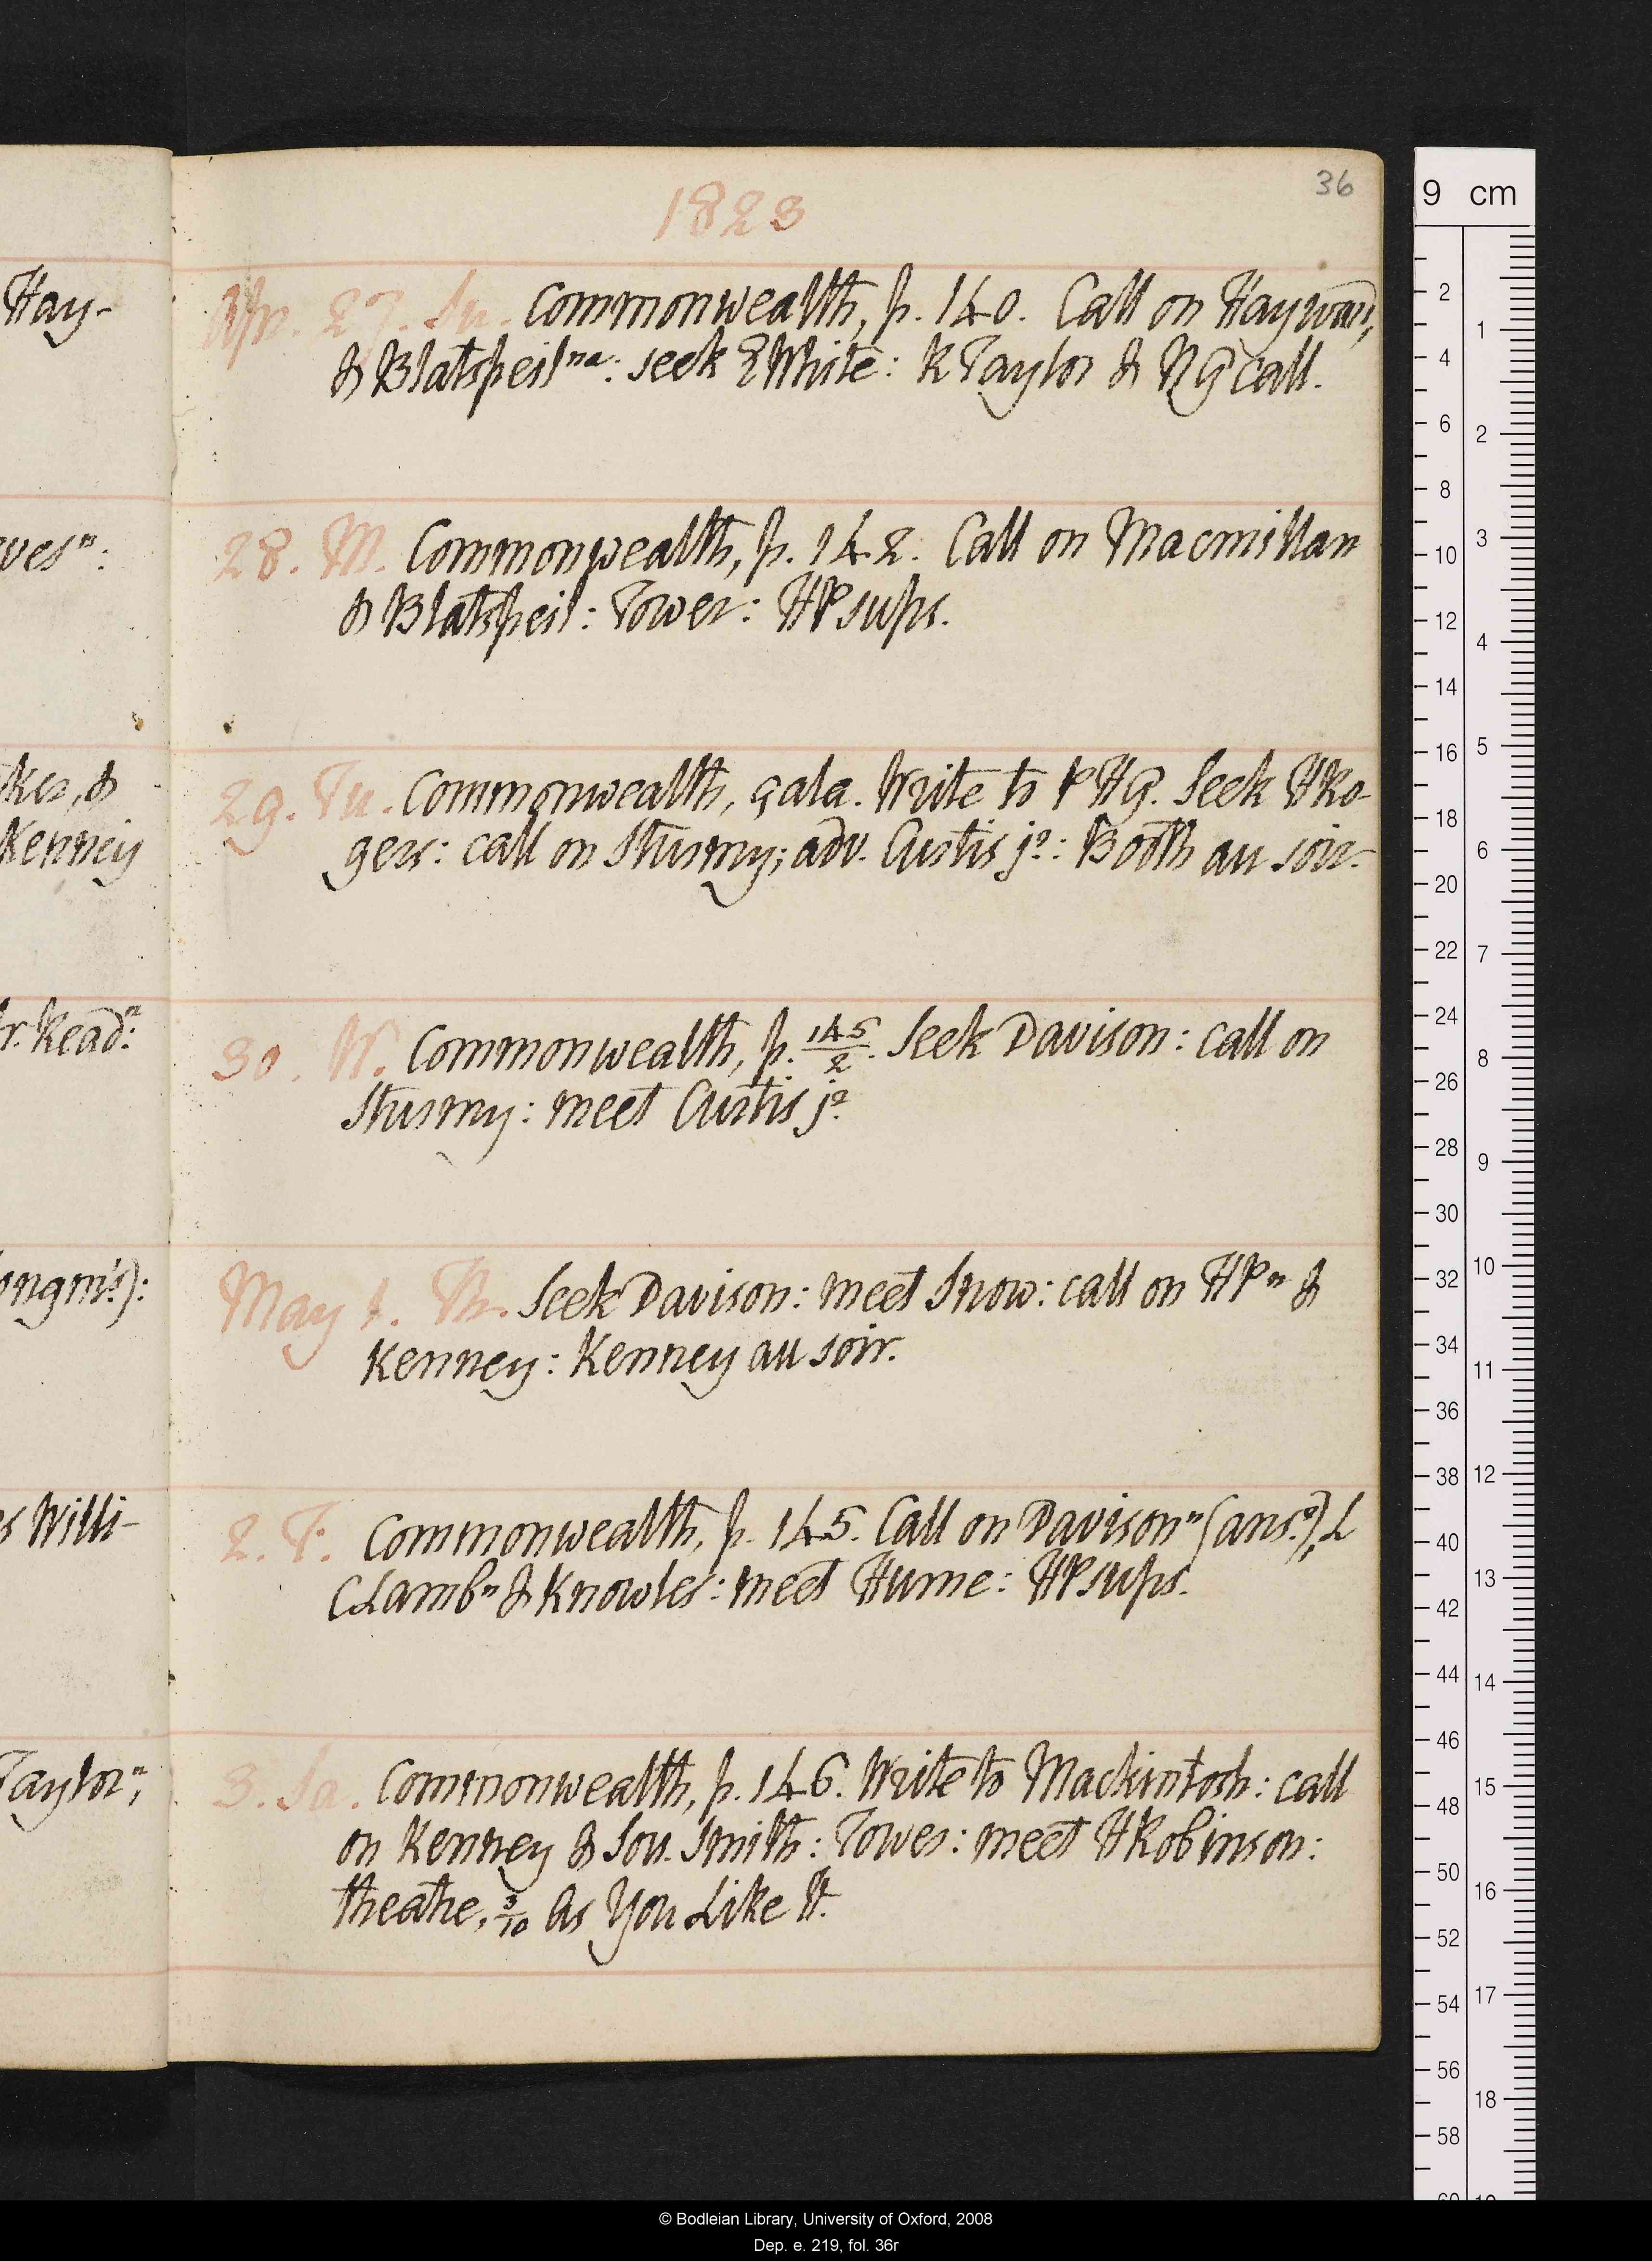 36
1823
Hay-
Apr. 27. Su. Commonwealth, p. 140. Call on Hayward,
& Blatspeil na: seek E White: R Taylor & N G call.
ves n:
28. M. Commonwealth, p. 142. Call on Macmillan
& Blatspeil: Tower: HP sups.
kes, &
Kenney
29. Tu. Commonwealth, gala. Write to P H G. Seek H Ro-
gers: call on Sturmy; adv. Curtis jr.: Booth au soir.
r. Read n:
30. W. Commonwealth, p. 145/2. Seek Davison: call on
Sturmy: meet Curtis jr.
ongm's):
May 1. Th. Seek Davison: meet Snow: call on HP n &
Kenney: Kenney au soir.
s Willi-
2. F. Commonwealth, p. 145. Call on Davison n (ansr.), L
C Lamb n & Knowles: meet Hume: HP sups.
Taylor n;
3. Sa. Commonwealth, p. 146. Write to Mackintosh: call
on Kenney & Sou. Smith: Tower: meet H Robinson:
theatre, 3/10 As You Like It.
9 cm
2 4 6 8 10 12 14 16 18 20 22 24 26 28 30 32 34 36 38 40 42 44 46 48 50 52 54 56 58
1 2 3 4 5 6 7 8 9 10 11 12 13 14 15 16 17 18
© Bodleian Library, University of Oxford, 2008
Dep. e. 219, fol. 36r